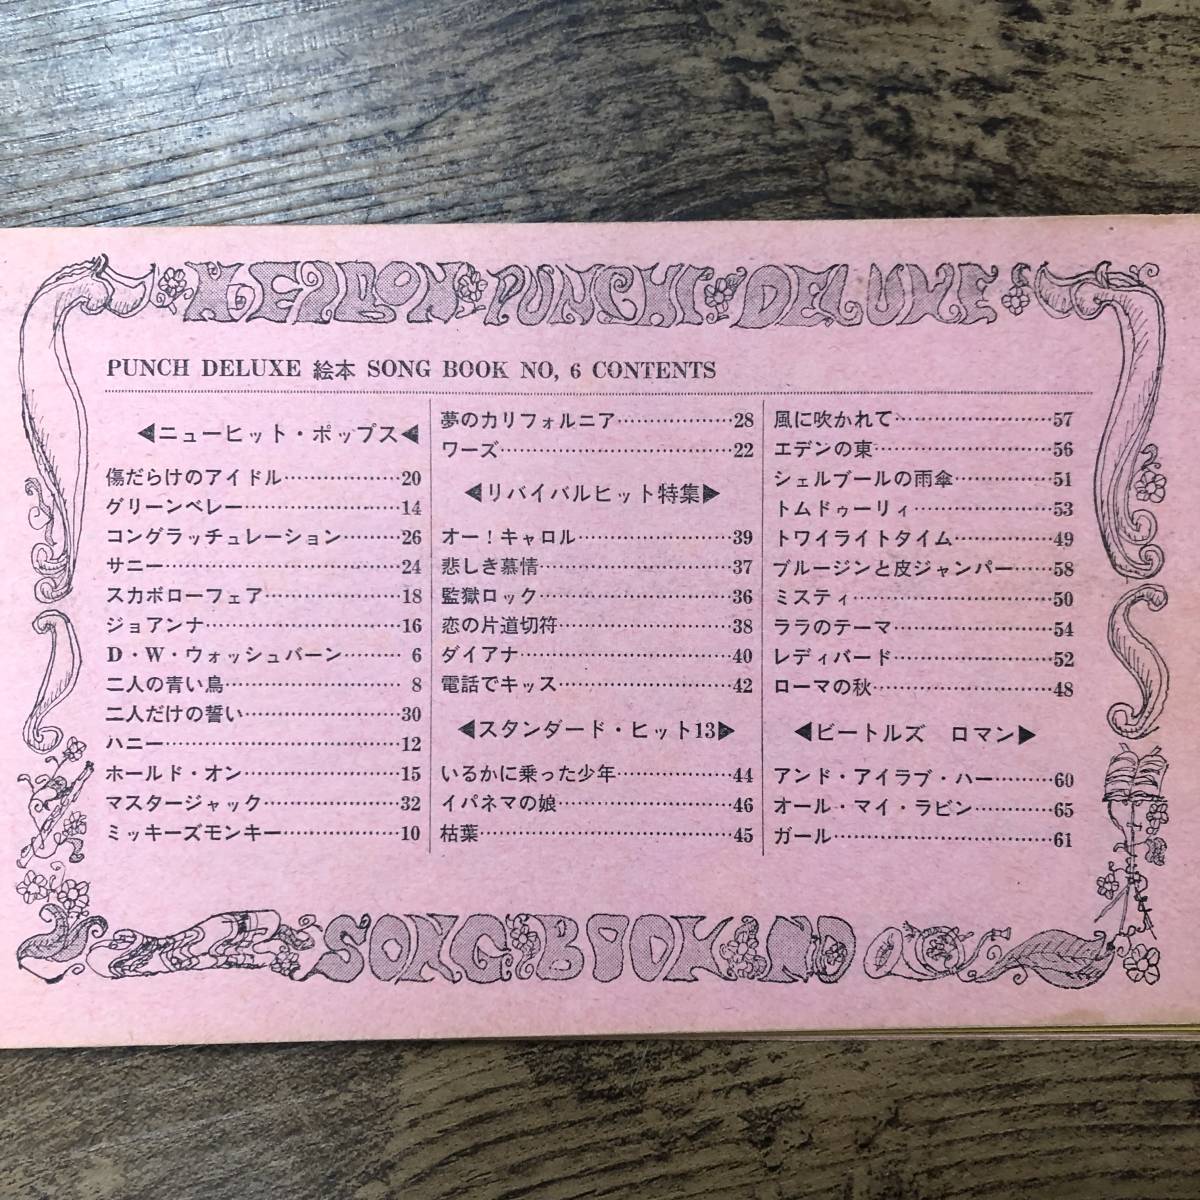 HEIBON PUNCH DELUXE
PUNCH DELUXE 絵本 SONG BOOK NO, 6 CONTENTS
◀ニューヒット・ポップス◀
傷だらけのアイドル………………20
グリーンベレー………………14
コングラッチュレーション………26
サニー………………24
スカボローフェア………………18
ジョアンナ………………16
D・W・ウォッシュバーン……… 6
二人の青い鳥……………… 8
二人だけの誓い………………30
ハニー………………12
ホールド・オン………………15
マスタージャック………………32
ミッキーズモンキー………………10
夢のカリフォルニア………………28
ワーズ………………22
◀リバイバルヒット特集▶
オー！キャロル………………39
悲しき慕情………………37
監獄ロック………………36
恋の片道切符………………38
ダイアナ………………40
電話でキッス………………42
◀スタンダード・ヒット13▶
いるかに乗った少年………………44
イパネマの娘………………46
枯葉………………45
風に吹かれて………………57
エデンの東………………56
シェルブールの雨傘………………51
トムドゥーリィ………………53
トワイライトタイム………………49
ブルージンと皮ジャンパー……58
ミスティ………………50
ララのテーマ………………54
レディバード………………52
ローマの秋………………48
◀ビートルズ　ロマン▶
アンド・アイラブ・ハー………60
オール・マイ・ラビン………65
ガール………………61
SONG BOOK NO